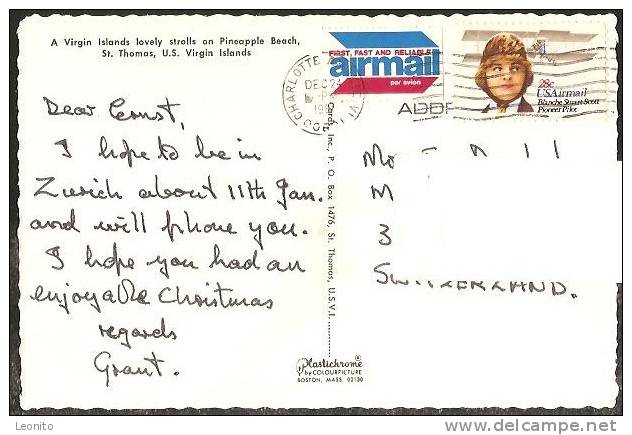 A Virgin Islands lovely strolls on Pineapple Beach,
St. Thomas, U.S. Virgin Islands
FIRST, FAST AND RELIABLE
airmail
par avion
CHARLOTTE
DEC 24
ADDR
28c
USAirmail
Blanche Stuart Scott
Pioneer Pilot
Dear Ernst,
I hope to be in
Zurich about 11th Jan.
and will phone you.
I hope you had an
enjoyable Christmas
regards
Grant.
Cards, Inc., P. O. Box 1476, St. Thomas, U.S.V.I.
M
3
SWITZERLAND.
Plastichrome®
by COLOURPICTURE
BOSTON, MASS. 02130
Leonito
www.delcampe.net